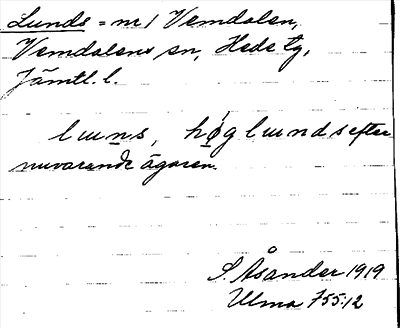 Lunds = nr 1 Vemdalen,
Vemdalens sn, Hede tg,
Jämtl. l.
luuns, høgluunds efter
nuvarande ägaren.
S. Åsander 1919
Ulma 755:12